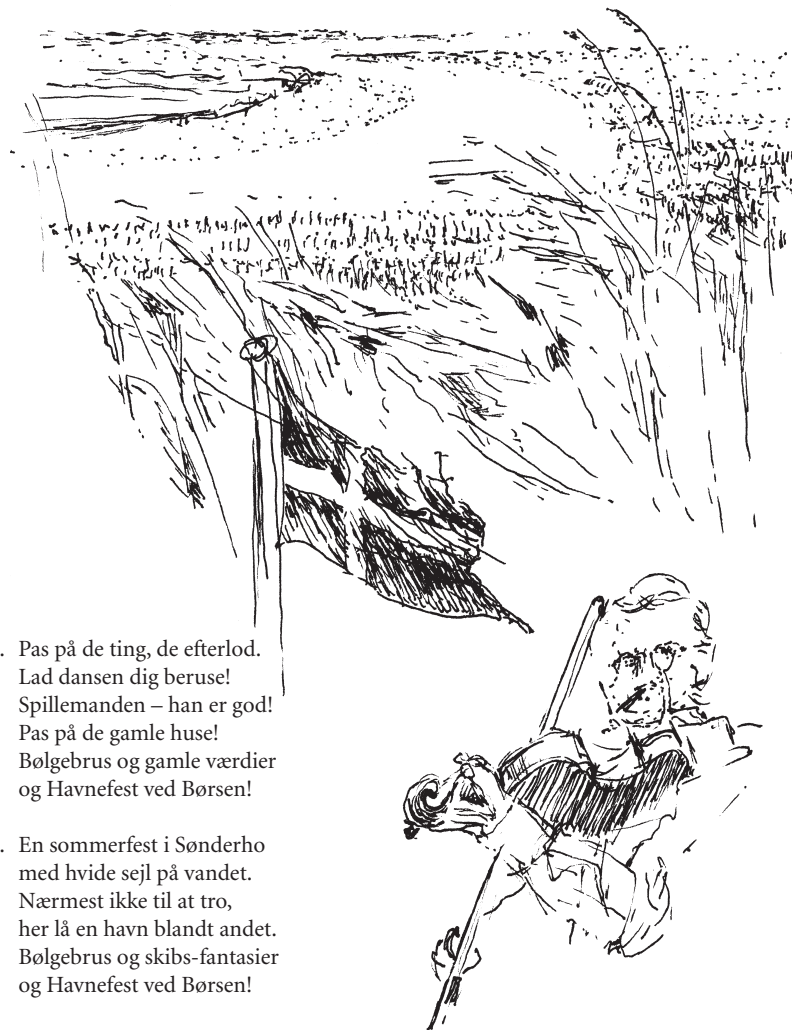 . Pas på de ting, de efterlod.
Lad dansen dig beruse!
Spillemanden – han er god!
Pas på de gamle huse!
Bølgebrus og gamle værdier
og Havnefest ved Børsen!
. En sommerfest i Sønderho
med hvide sejl på vandet.
Nærmest ikke til at tro,
her lå en havn blandt andet.
Bølgebrus og skibs-fantasier
og Havnefest ved Børsen!